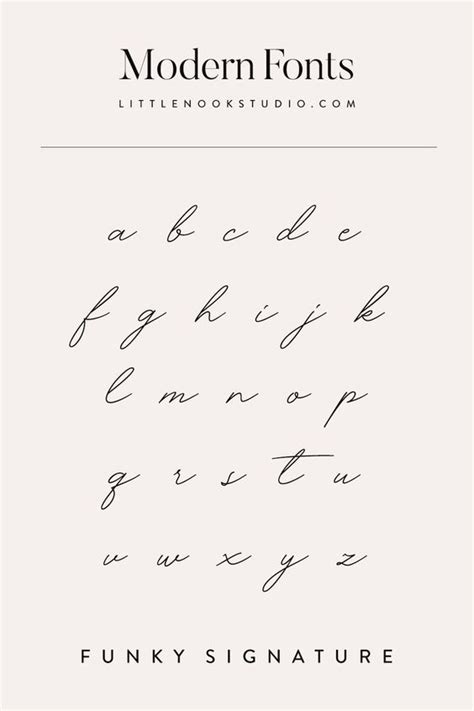 Modern Fonts
LITTLENOOKSTUDIO.COM
a b c d e
f g h i j k
l m n o p
q r s t u
v w x y z
FUNKY SIGNATURE